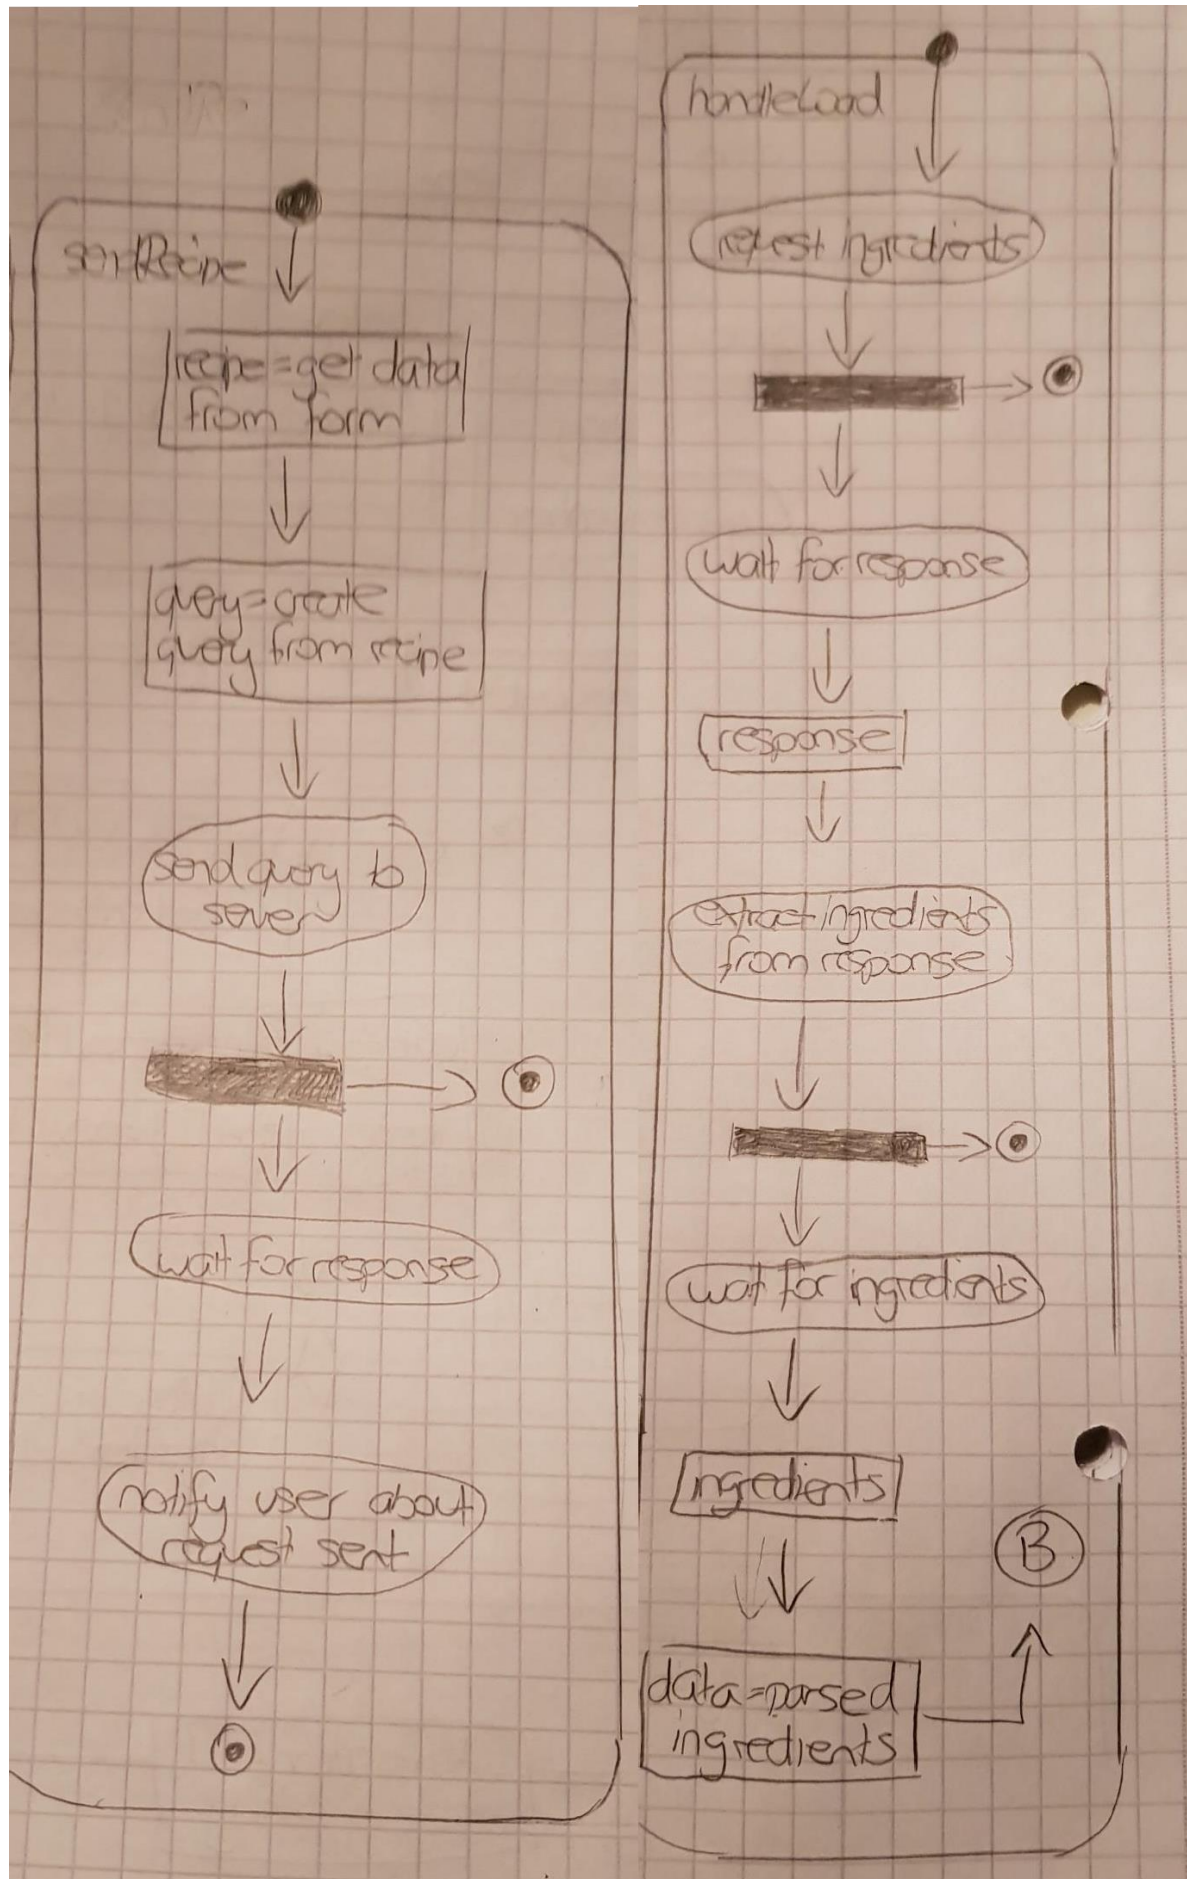 sendRecipe
recipe=get data
from form
query=create
query from recipe
send query to
sever
wait for response
notify user about
request sent
handleLoad
request ingredients
wait for response
response
extract ingredients
from response
wait for ingredients
ingredients
B
data=parsed
ingredients